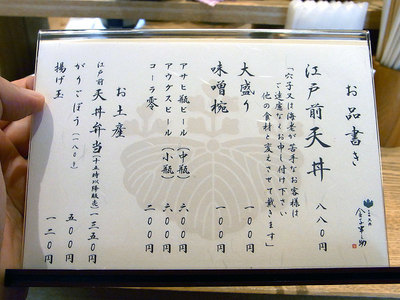 お品書き
江戸前天丼 八八〇円
「穴子又は海老が苦手なお客様は
ご遠慮なくお申し付け下さい
他の食材と変えさせて戴きます」
大盛り 一〇〇円
味噌椀 一〇〇円
アサヒ瓶ビール(中瓶) 六〇〇円
アウグスビール(小瓶) 六〇〇円
コーラ零 二〇〇円
お土産
江戸前 天丼弁当(十五時以降販売) 一三五〇円
がりごぼう(一八〇g) 五〇〇円
揚げ玉 一二〇円
金子半之助